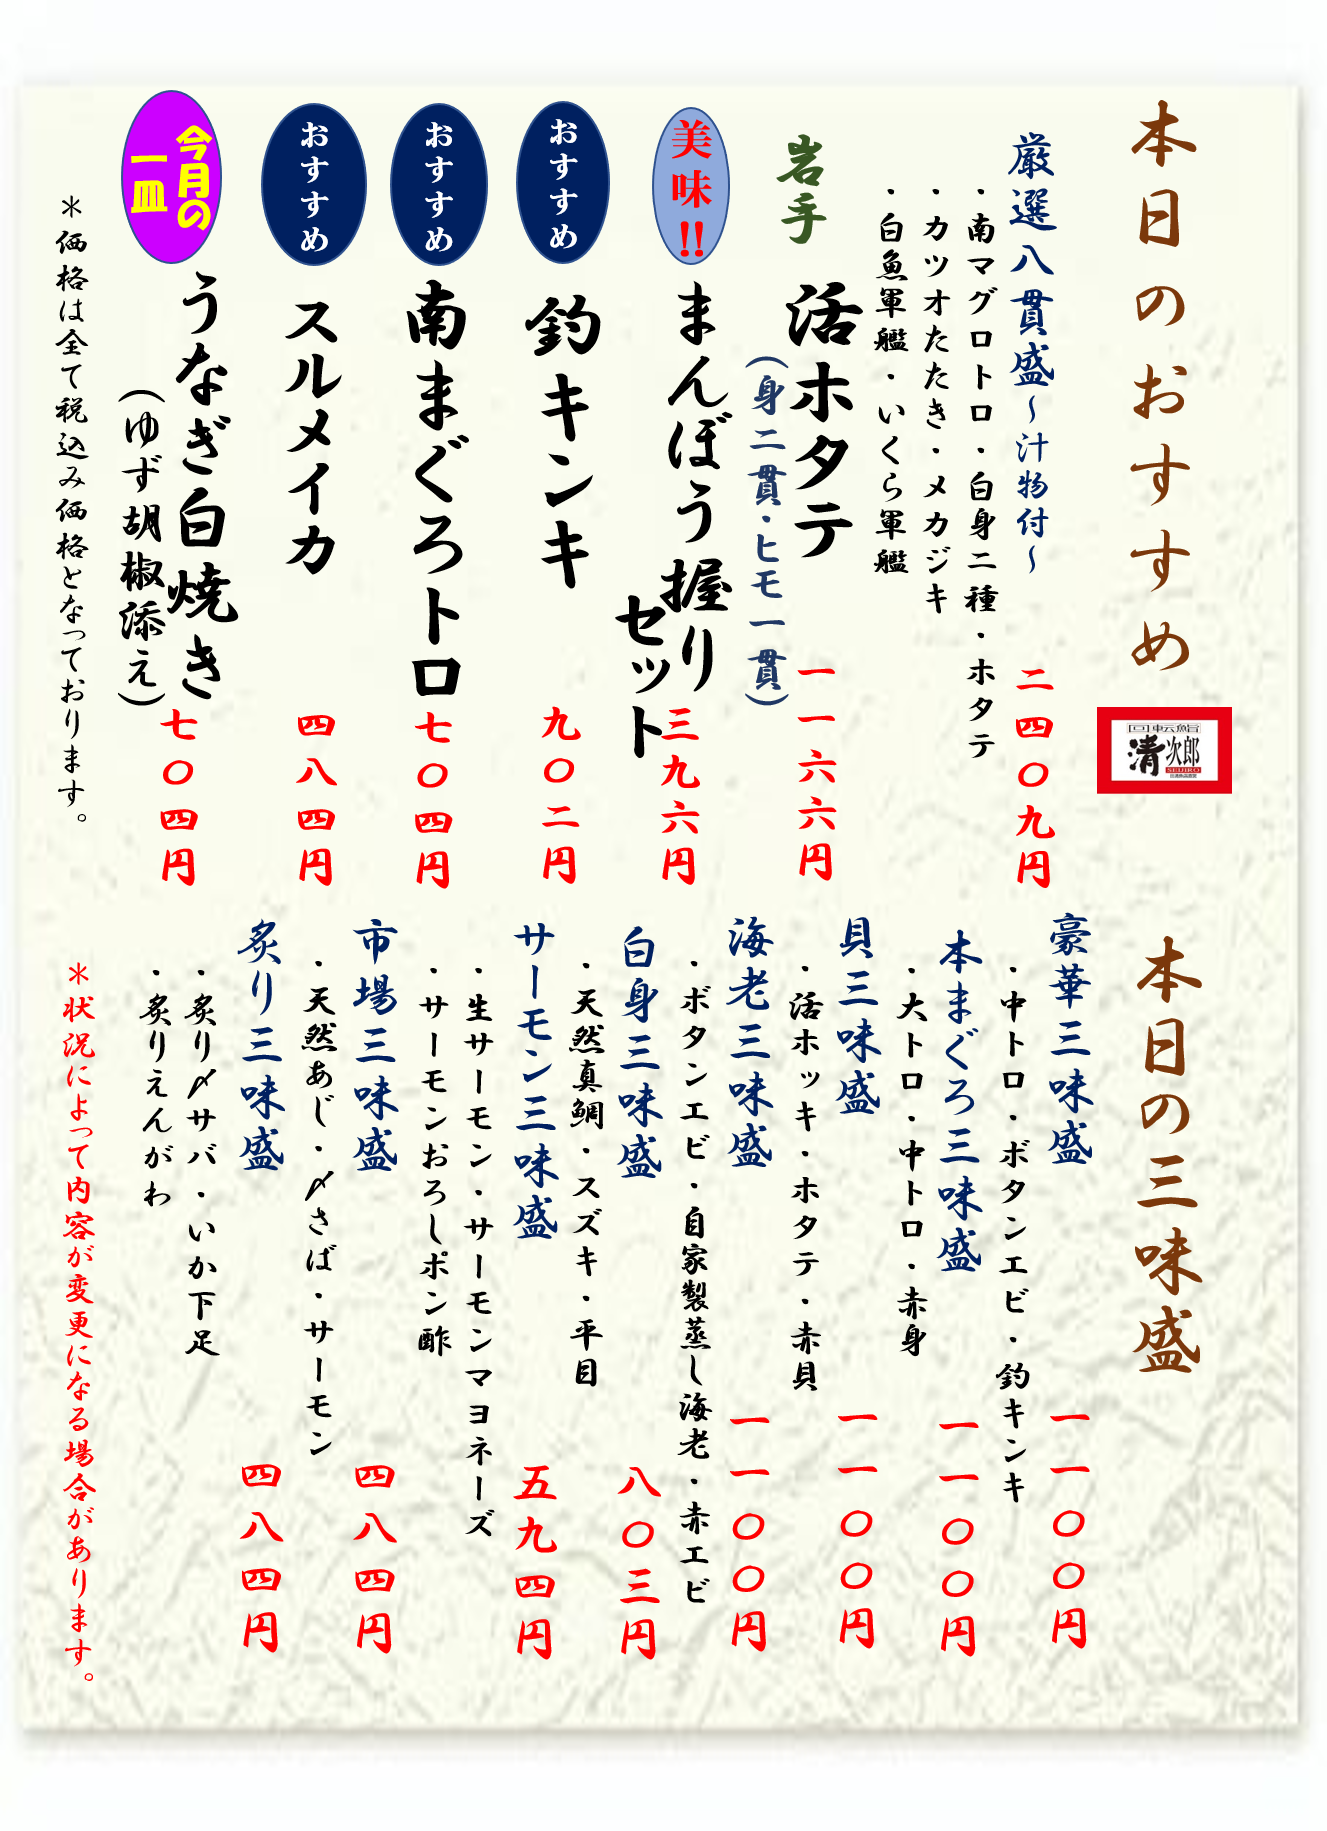 本日のおすすめ
回転鮨
清次郎
SEIJIRO
厳選八貫盛～汁物付～
二四〇九円
・南マグロトロ・白身二種・ホタテ
・カツオたたき・メカジキ
・白魚軍艦・いくら軍艦
岩手
活ホタテ
一一六六円
(身二貫・ヒモ一貫)
美味!!
まんぼう握り
セット
三九六円
おすすめ
釣キンキ
九〇二円
おすすめ
南まぐろトロ
七〇四円
おすすめ
スルメイカ
四八四円
今月の
一皿
うなぎ白焼き
(ゆず胡椒添え)
七〇四円
＊価格は全て税込み価格となっております。
本日の三味盛
豪華三味盛
一一〇〇円
・中トロ・ボタンエビ・釣キンキ
本まぐろ三味盛
一一〇〇円
・大トロ・中トロ・赤身
貝三味盛
一一〇〇円
・活ホッキ・ホタテ・赤貝
海老三味盛
一一〇〇円
・ボタンエビ・自家製蒸し海老・赤エビ
白身三味盛
八〇三円
・天然真鯛・スズキ・平目
サーモン三味盛
五九四円
・生サーモン・サーモンマヨネーズ
・サーモンおろしポン酢
市場三味盛
四八四円
・天然あじ・〆さば・サーモン
炙り三味盛
四八四円
・炙り〆サバ・いか下足
・炙りえんがわ
＊状況によって内容が変更になる場合があります。